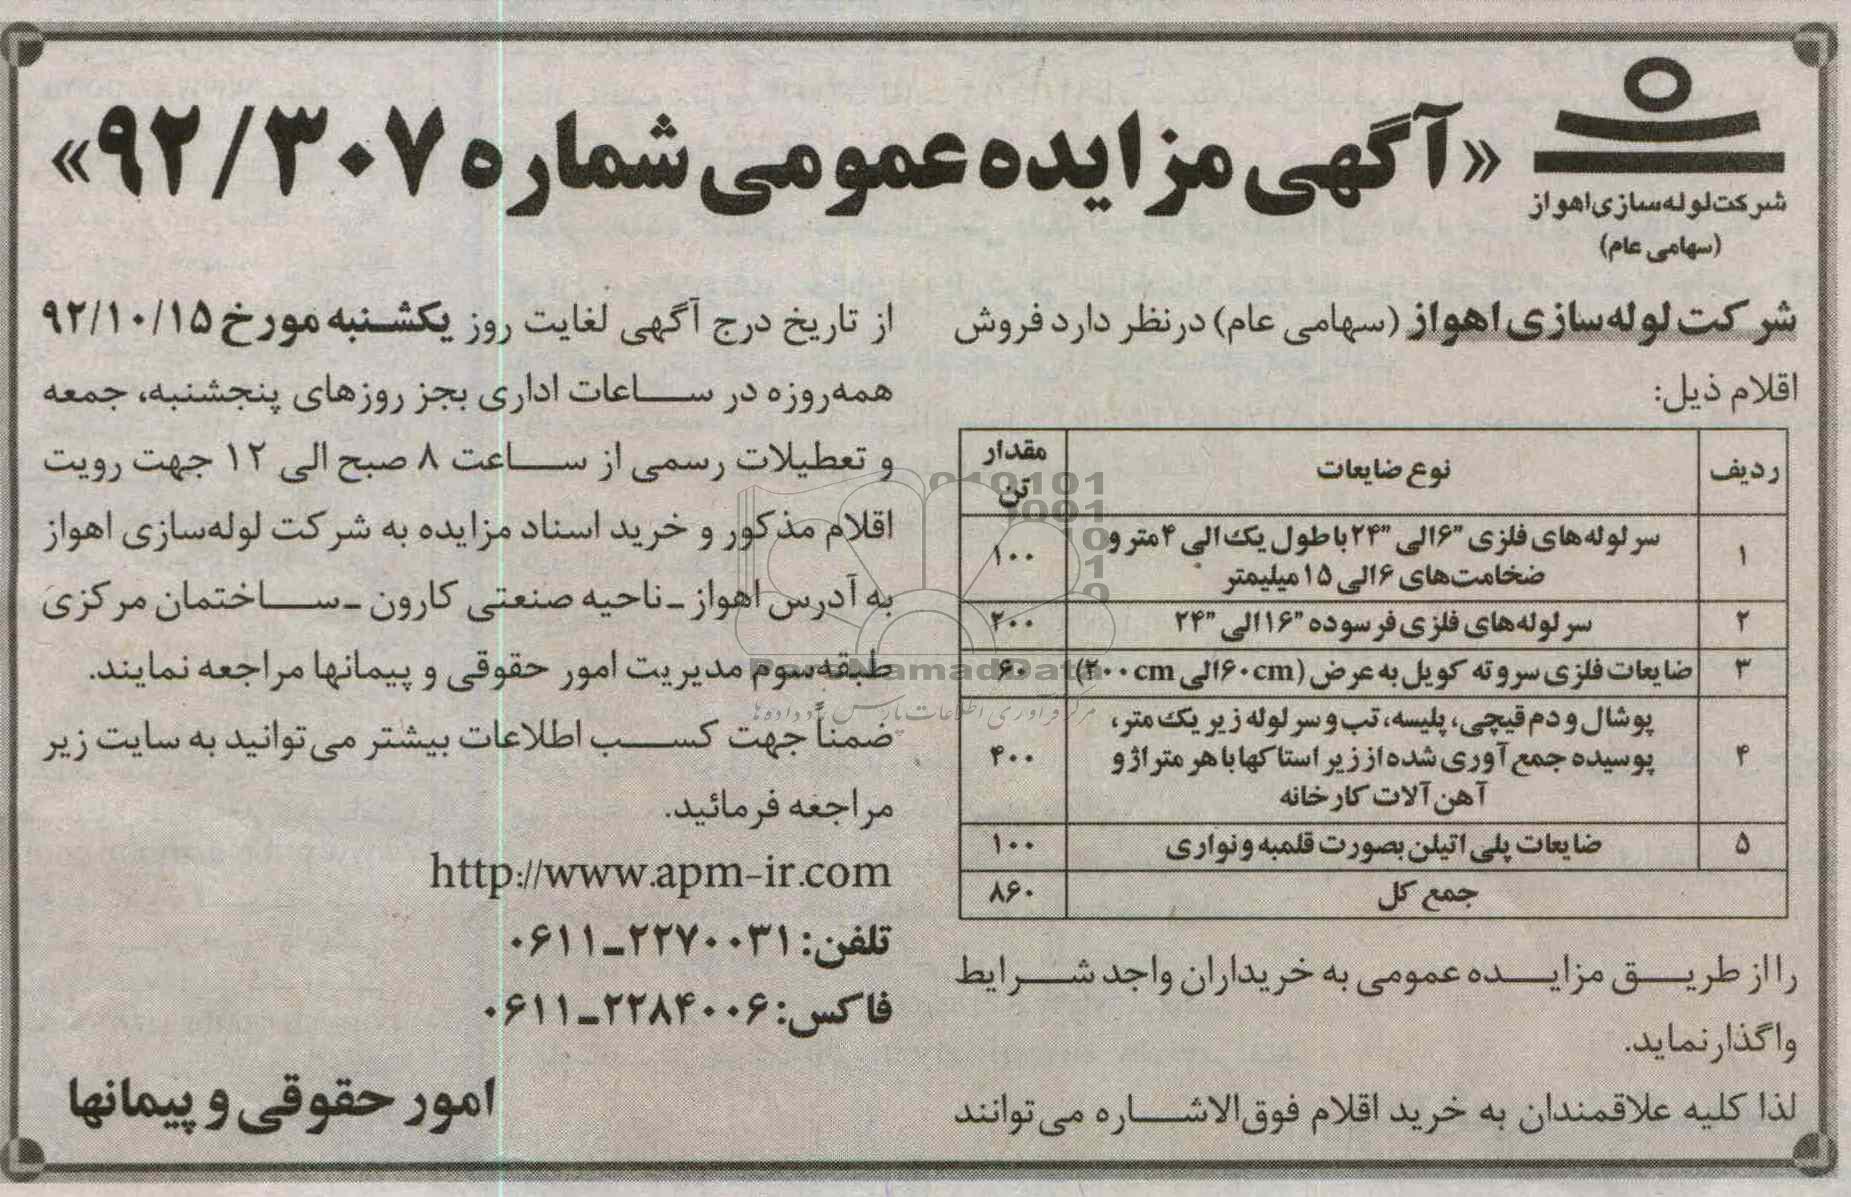 شرکت لوله‌سازی اهواز
(سهامی عام)
«آگهی مزایده عمومی شماره ۹۲/۳۰۷»
شرکت لوله‌سازی اهواز (سهامی عام) درنظر دارد فروش
اقلام ذیل:
ردیف نوع ضایعات مقدار تن
۱ سر لوله‌های فلزی ”۶الی ”۲۴ با طول یک الی ۴متر و ۱۰۰
ضخامت‌های ۶الی ۱۵میلیمتر
۲ سر لوله‌های فلزی فرسوده ”۱۶الی ”۲۴ ۲۰۰
۳ ضایعات فلزی سر و ته کویل به عرض (۶۰cmالی ۲۰۰cm) ۶۰
پوشال و دم قیچی، پلیسه، تب و سر لوله زیر یک متر،
۴ پوسیده جمع آوری شده از زیر استاکها با هر متراژ و ۴۰۰
آهن آلات کارخانه
۵ ضایعات پلی اتیلن بصورت قلمبه و نواری ۱۰۰
جمع کل ۸۶۰
را از طریق مزایده عمومی به خریداران واجد شرایط
واگذار نماید.
لذا کلیه علاقمندان به خرید اقلام فوق‌الاشاره می‌توانند
از تاریخ درج آگهی لغایت روز یکشنبه مورخ ۹۲/۱۰/۱۵
همه‌روزه در ساعات اداری بجز روزهای پنجشنبه، جمعه
و تعطیلات رسمی از ساعت ۸ صبح الی ۱۲ جهت رویت
اقلام مذکور و خرید اسناد مزایده به شرکت لوله‌سازی اهواز
به آدرس اهواز ـ ناحیه صنعتی کارون ـ ساختمان مرکزی
طبقه سوم مدیریت امور حقوقی و پیمانها مراجعه نمایند.
ضمناً جهت کسب اطلاعات بیشتر می‌توانید به سایت زیر
مراجعه فرمائید.
http://www.apm-ir.com
تلفن: ۲۲۷۰۰۳۱ـ۰۶۱۱
فاکس: ۲۲۸۴۰۰۶ـ۰۶۱۱
امور حقوقی و پیمانها
ParsNamadData
مرکز فرآوری اطلاعات پارس نماد داده ها